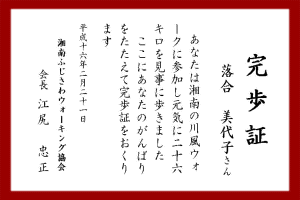 完歩証
落合 美代子さん
あなたは湘南の川風ウォ
ークに参加し元気に二十六
キロを見事に歩きました
ここにあなたのがんばり
をたたえて完歩証をおくり
ます
平成十六年二月二十一日
湘南ふじさわウォーキング協会
会長 江尻 忠正